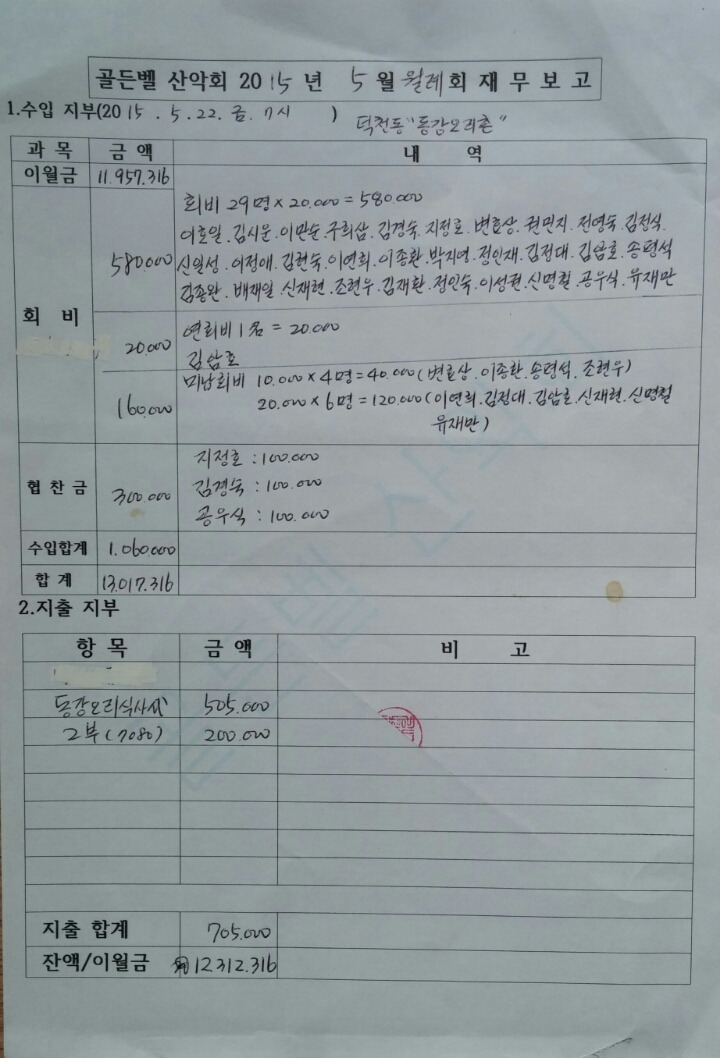 골든벨 산악회 2015년 5월 월례회 재무보고
1.수입 지부(2015.5.22.금.7시 ) 덕천동 "동강오리촌"
과 목 금 액 내 역
이월금 11.957.316
회비 29명 × 20.000 = 580.000
이호일.김시운.이만순.구희삼.김경숙.지정호.변효상.권민지.전영숙.김점식
580.000 신일성.이정애.김현숙.이연희.이종환.박지연.정인재.김정대.김암호.송평석
김종완.배재일.신재현.조현우.김재환.정인숙.이성권.신명철.공우식.유재만
회 비
20.000 연회비 1名 = 20.000
김암호
미납회비 10.000×4명=40.000(변효상.이종환.송평석.조현우)
160.000 20.000×6명=120.000(이연희.김정대.김암호.신재현.신명철
유재만)
지정호 : 100.000
협찬금 300.000 김경숙 : 100.000
공우식 : 100.000
수입합계 1.060.000
합 계 13.017.316
2.지출 지부
항 목 금 액 비 고
동강오리식사대 505.000
2부(7080) 200.000
지출 합계 705.000
잔액/이월금 12.312.316